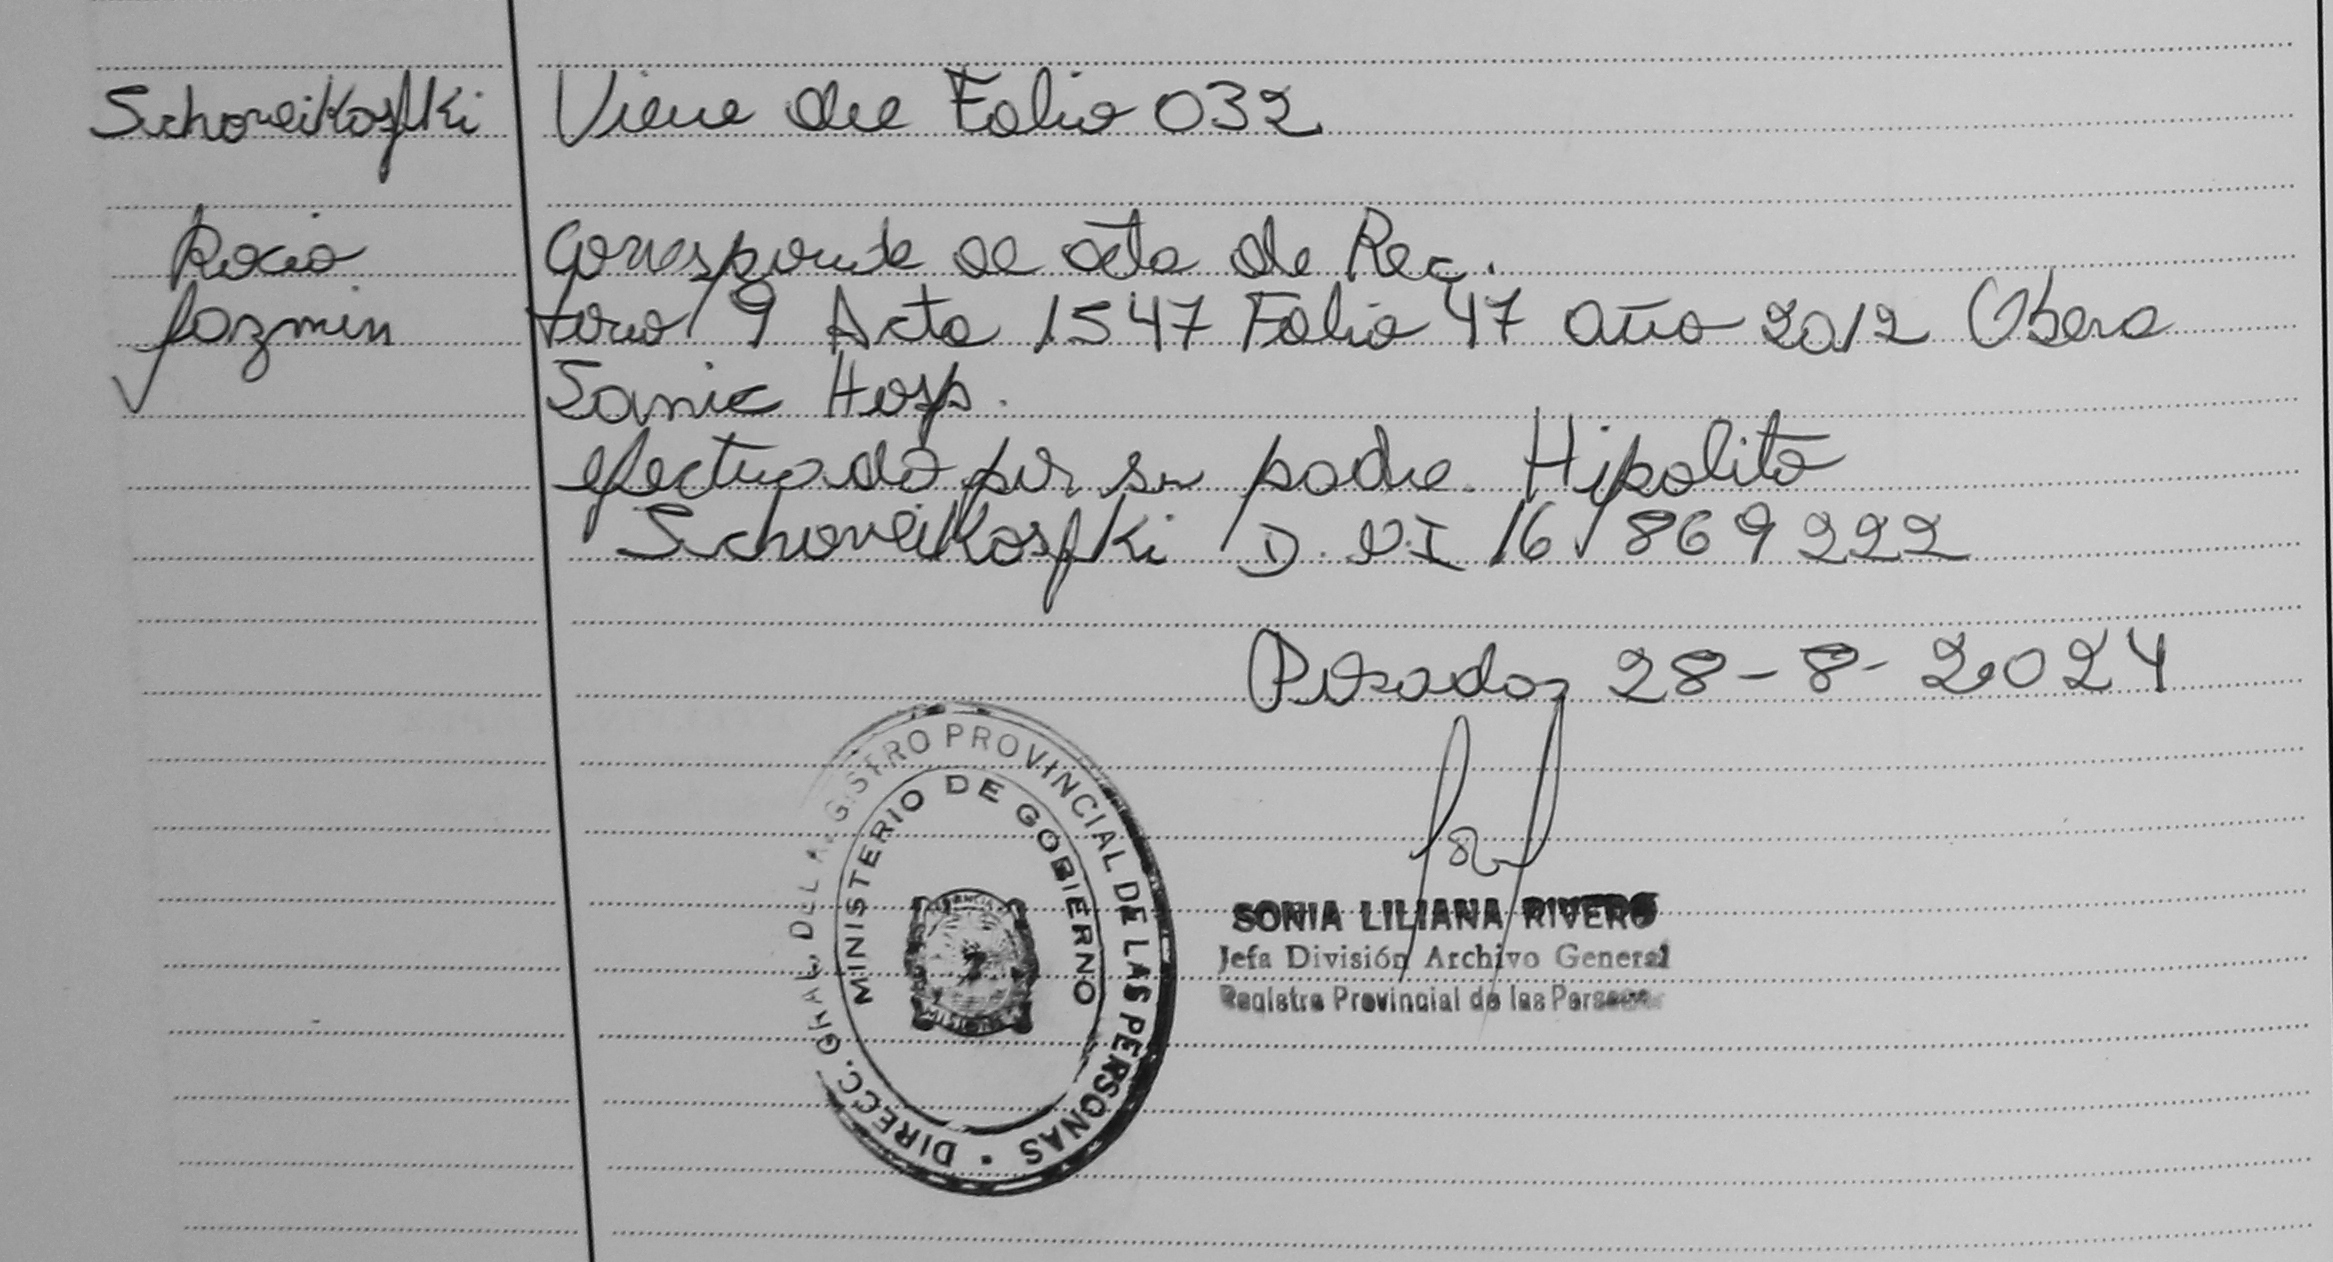 Schoneikosfki
Viene del Folio 032
Rocio
Jazmin
Corresponde al acta de Rec.
tomo 9 Acta 1547 Folio 47 año 2012 Obera
Samic Hosp.
efectuado por su padre. Hipolito
Schoneikosfki D.N.I 16 869 222
Posadas 28-8-2024
DIRECC. GRAL. DEL REGISTRO PROVINCIAL DE LAS PERSONAS
MINISTERIO DE GOBIERNO
SONIA LILIANA RIVERO
Jefa División Archivo General
Registro Provincial de las Personas